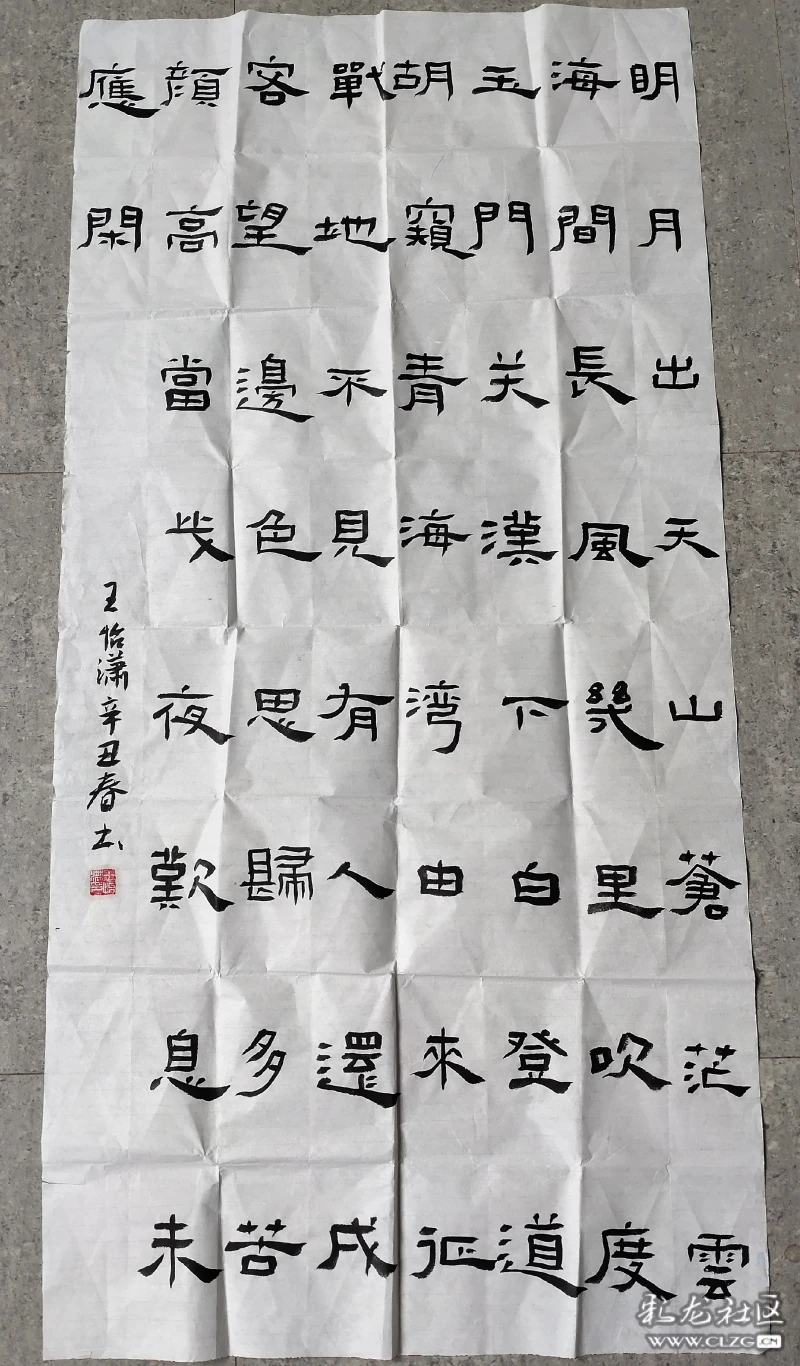 眀月出天山蒼茫雲
海間長風幾里吹度
玉門关漢下白登道
胡窺青海湾由來征
戰地不見有人還戍
客望邊色思歸多苦
顔高當此夜歎息未
應閑
王怡潇辛丑春书
彩龙社区
WWW.CLZG.CN